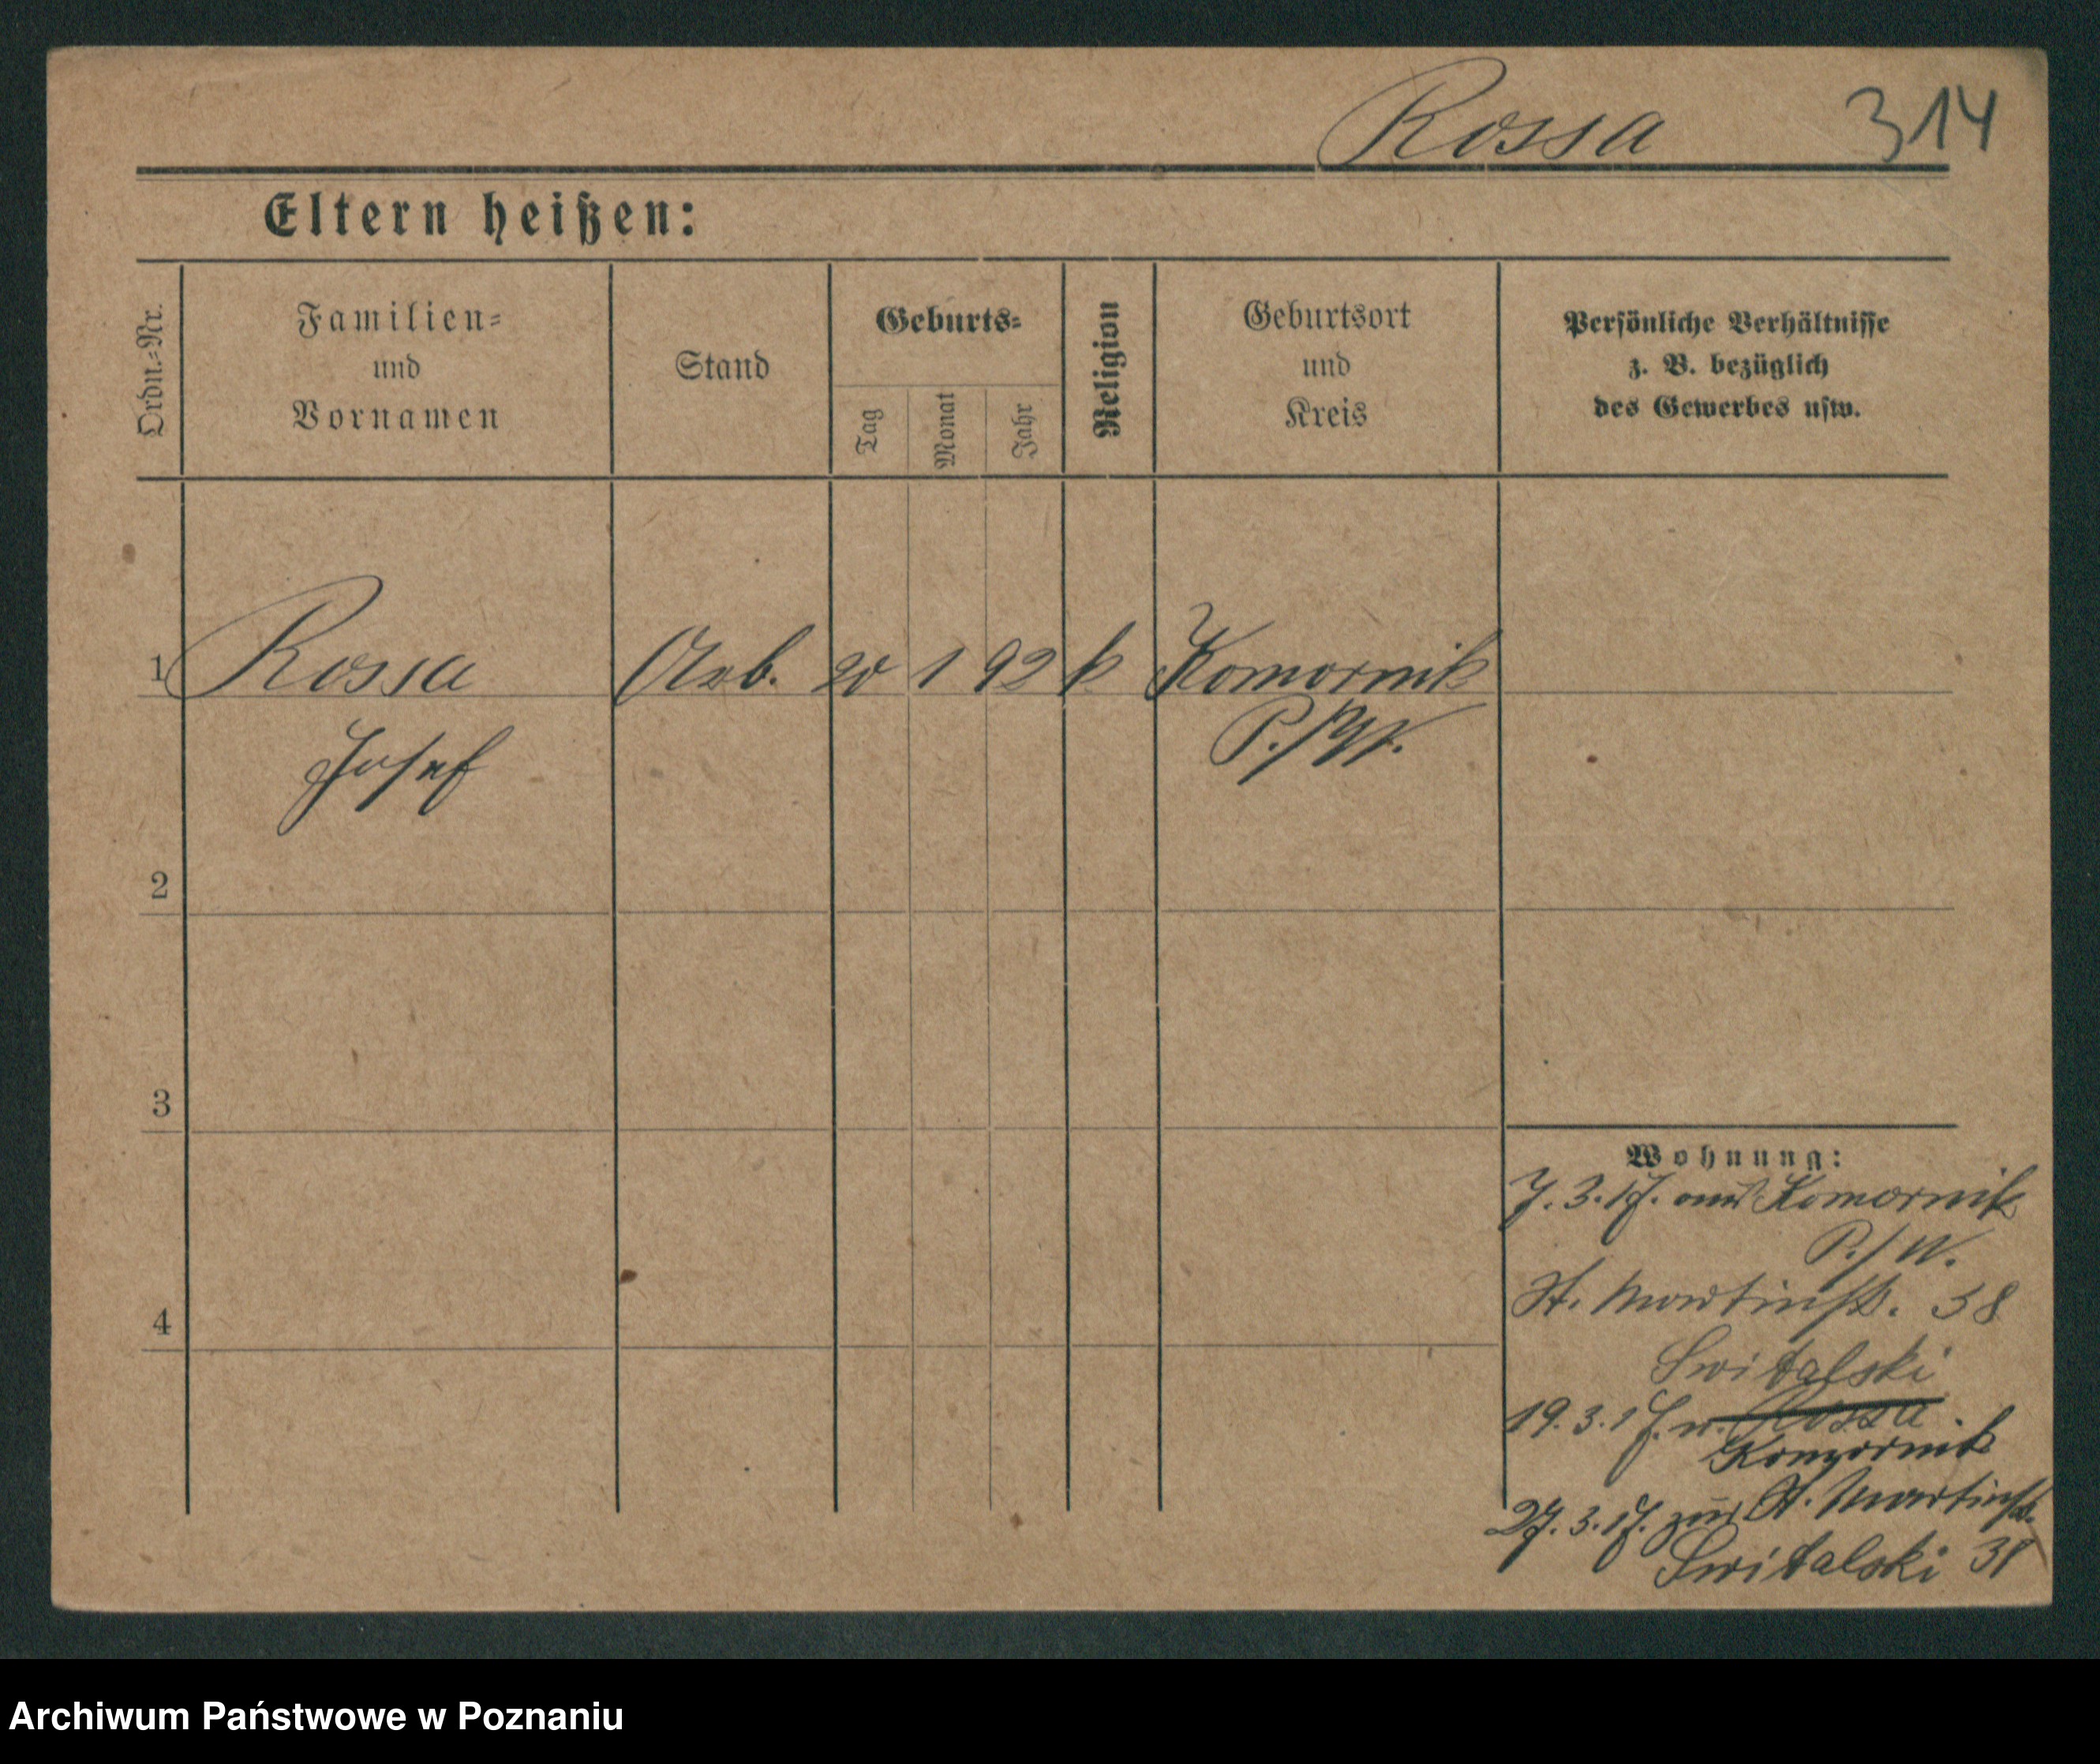 Rossa 314
Eltern heißen:
Ordn.-Nr.
Familien-
und
Vornamen
Stand
Geburts-
Tag
Monat
Jahr
Religion
Geburtsort
und
Kreis
Persönliche Verhältnisse
z. B. bezüglich
des Gewerbes usw.
1 Rossa Arb. 20 1 92 k Komornik
Josef P./W.
2
3
4
Wohnung:
7.3.17. aus Komornik
P./W.
St. Martinstr. 38
Switalski
19.3.17. n. Rossa
Komornik
27.3.17. zur. St. Martinstr.
Switalski 38
Archiwum Państwowe w Poznaniu